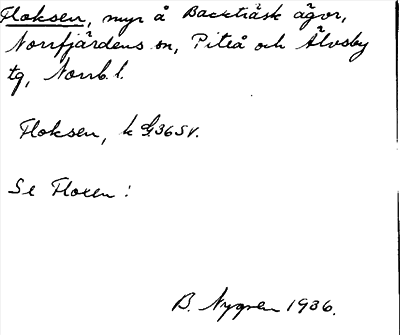 Floksen, myr å Backträsk ägor,
Norrfjärdens sn, Piteå och Älvsby
tg, Norrb. l.
Floksen, k G36SV.
Se Floxen:
B. Nygren 1936.